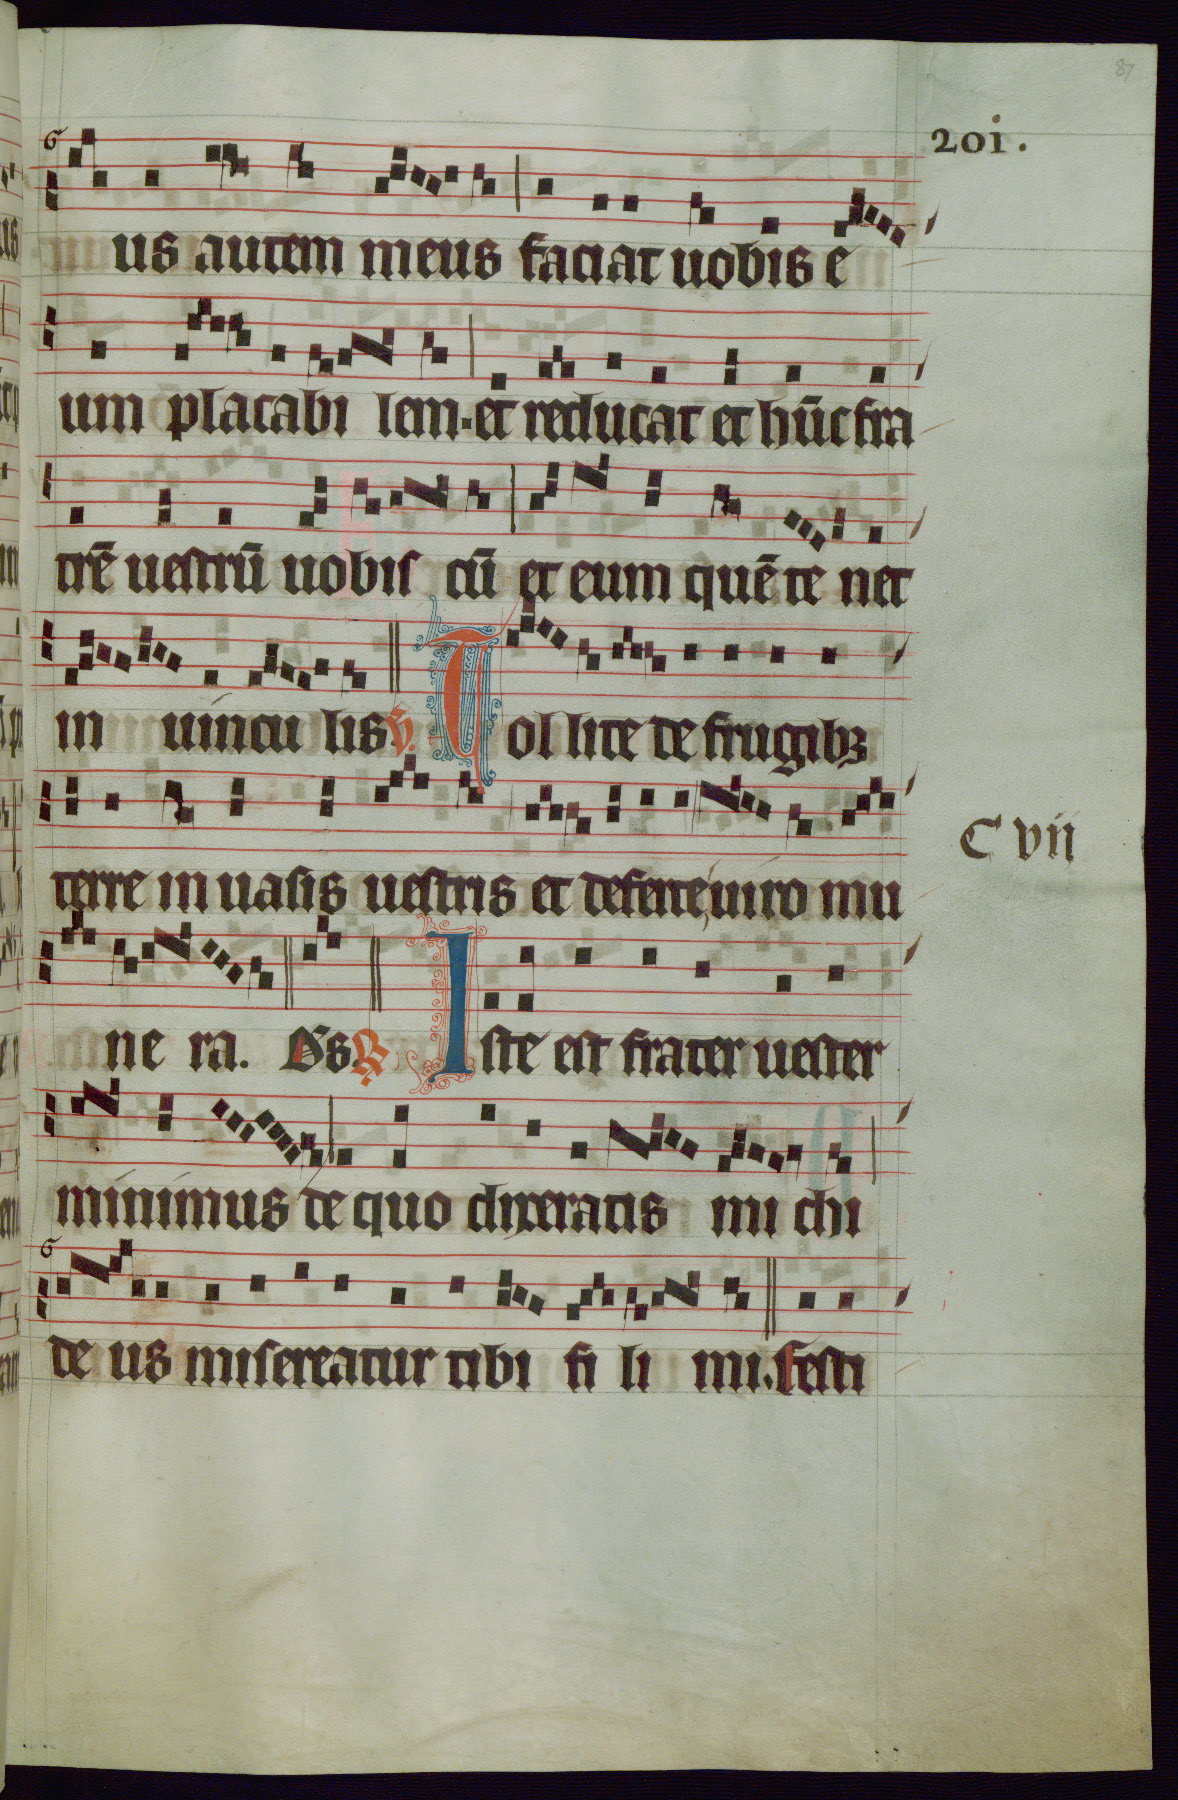 87
201.
us autem meus faciat uobis e
um placabi lem. et reducat et hūc fra
trē uestrū uobis cū et eum quē te net
in uincu lis V. Tol lite de frugibꝫ
terre in uasis uestris et deferte uiro mu
C vii
ne ra. Ds R Iste est frater uester
minimus de quo dixeratis mi chi
de us misereatur tibi fi li mi. festi